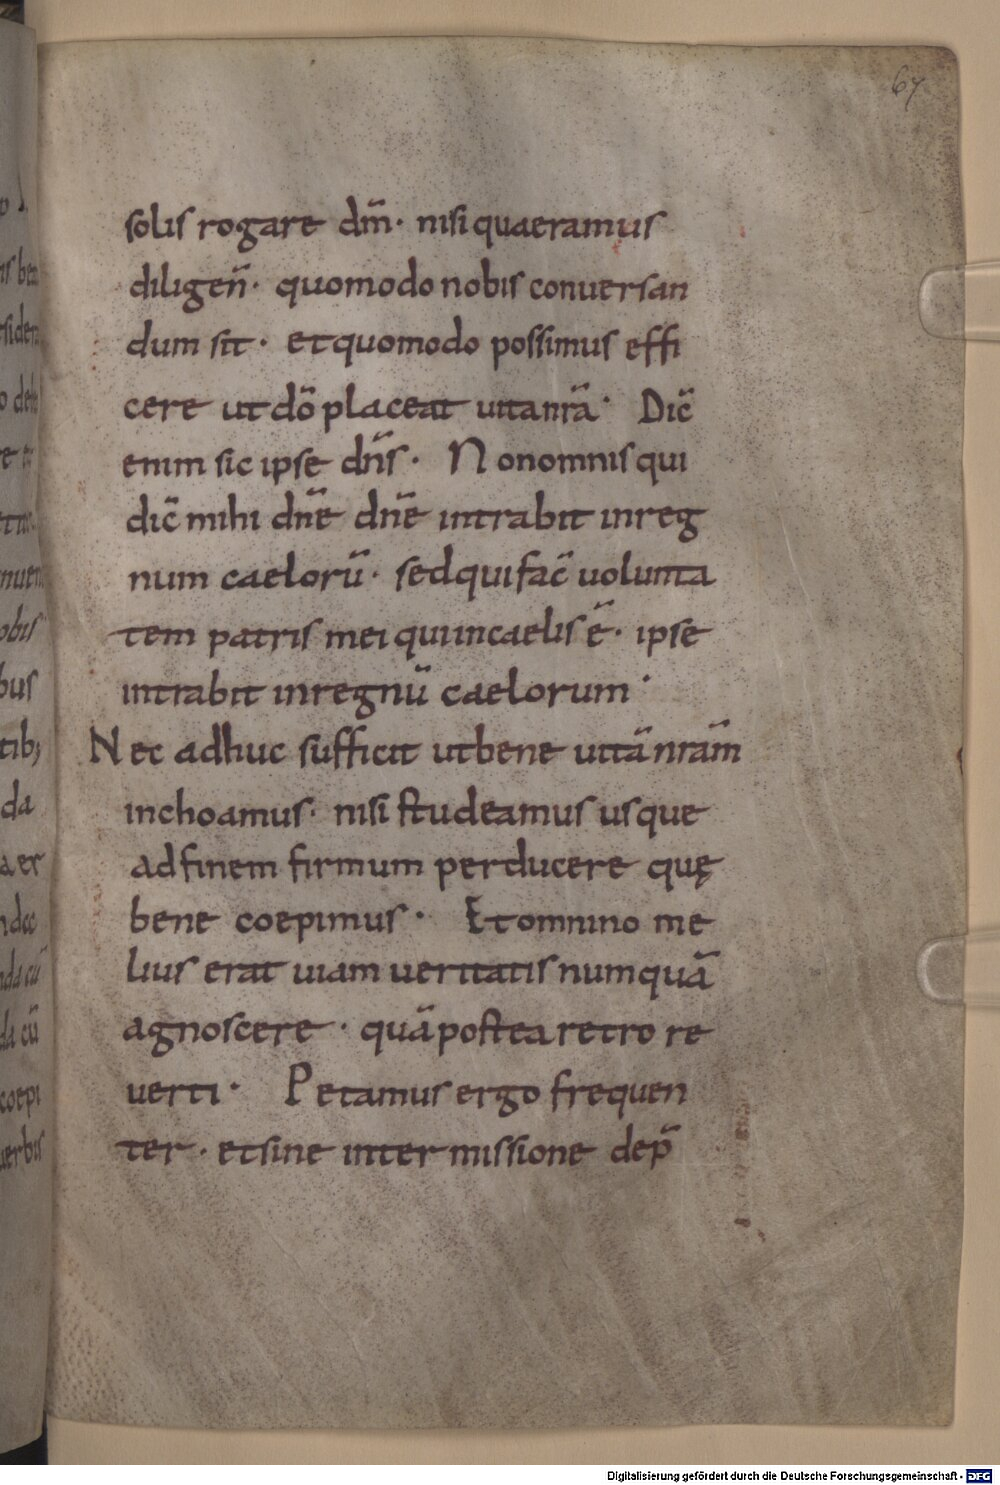 67
solis rogare dm̄· nisi quaeramus
diligen̄· quomodo nobis conuersan
dum sit· et quomodo possimus effi
cere ut dō placeat uita nrā· Dic̄
enim sic ipse dn̄s· Non omnis qui
dic̄ mihi dn̄e dn̄e intrabit in reg
num caelorū· sed qui fac̄ uolunta
tem patris mei qui in caelis ē· ipse
intrabit in regnū caelorum·
Nec adhuc sufficit ut bene uitā nrām
inchoamus· nisi studeamus usque
ad finem firmum perducere quę
bene coepimus· Et omnino me
lius erat uiam ueritatis numquā
agnoscere· quā postea retro re
uerti· Petamus ergo frequen
ter· et sine intermissione dep̄
Digitalisierung gefördert durch die Deutsche Forschungsgemeinschaft - DFG